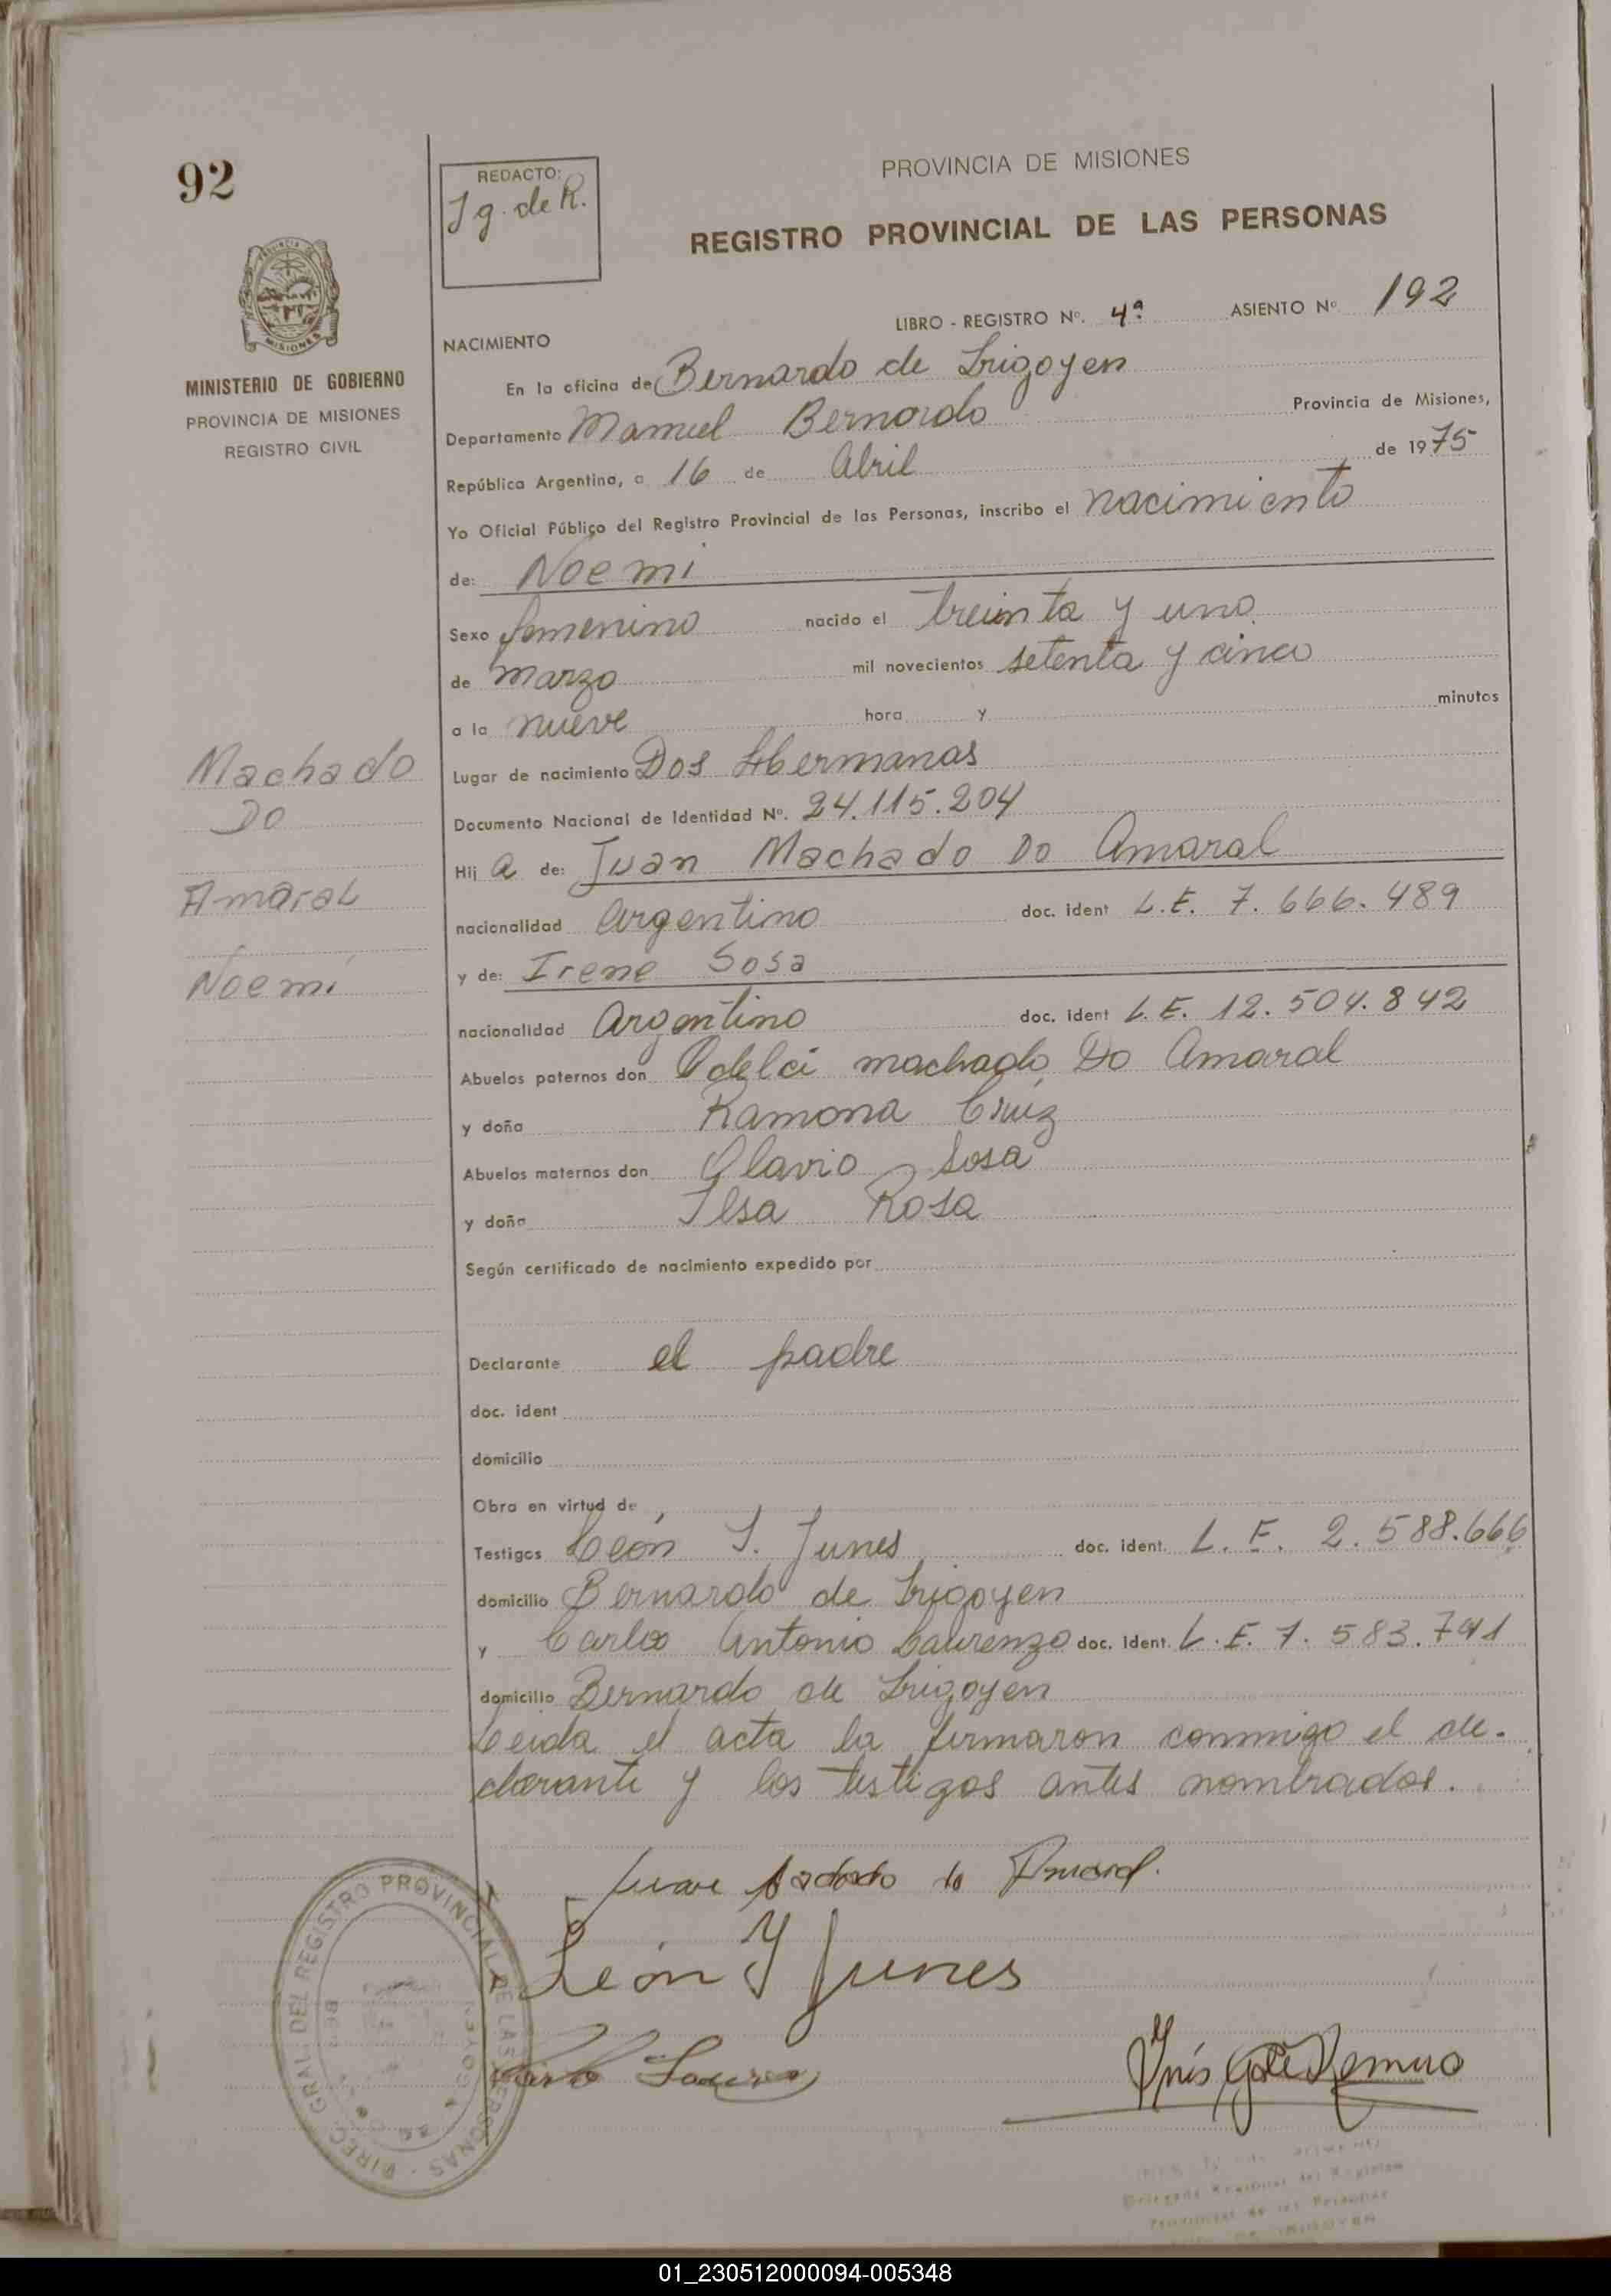 92
REDACTO:
Ig. de R.
PROVINCIA DE MISIONES
REGISTRO PROVINCIAL DE LAS PERSONAS
MISIONES
MINISTERIO DE GOBIERNO
PROVINCIA DE MISIONES
REGISTRO CIVIL
LIBRO - REGISTRO Nº. 4ª ASIENTO Nº 192
NACIMIENTO
En la oficina de Bernardo de Irigoyen
Departamento Manuel Bernardo Provincia de Misiones,
República Argentina, a 16 de Abril de 1975
Yo Oficial Público del Registro Provincial de las Personas, inscribo el nacimiento
de: Noemi
Sexo femenino nacido el treinta y uno
de marzo mil novecientos setenta y cinco
a la nueve hora y minutos
Machado
Do
Amaral
Noemi
Lugar de nacimiento Dos Hermanas
Documento Nacional de Identidad Nº. 24.115.204
Hij a de: Juan Machado Do Amaral
nacionalidad Argentino doc. ident L.E. 7.666.489
y de: Irene Sosa
nacionalidad Argentino doc. ident L.E. 12.504.842
Abuelos paternos don Odelci machado Do Amaral
y doña Ramona Cruz
Abuelos maternos don Olavio Sosa
y doña Ilsa Rosa
Según certificado de nacimiento expedido por
Declarante el padre
doc. ident
domicilio
Obra en virtud de
Testigos León Y. Junes doc. ident. L.E. 2.588.666
domicilio Bernardo de Irigoyen
y Carlos Antonio Laurenzo doc. ident. L.E. 7.583.791
domicilio Bernardo de Irigoyen
Leida el acta la firmaron conmigo el de-
clarante y los testigos antes nombrados.
León Y Junes
Inés G de Romero
DIREC. GRAL. DEL REGISTRO PROVINCIAL DE LAS PERSONAS
Delegada Regional del Registro
Provincial de las Personas
01_230512000094-005348